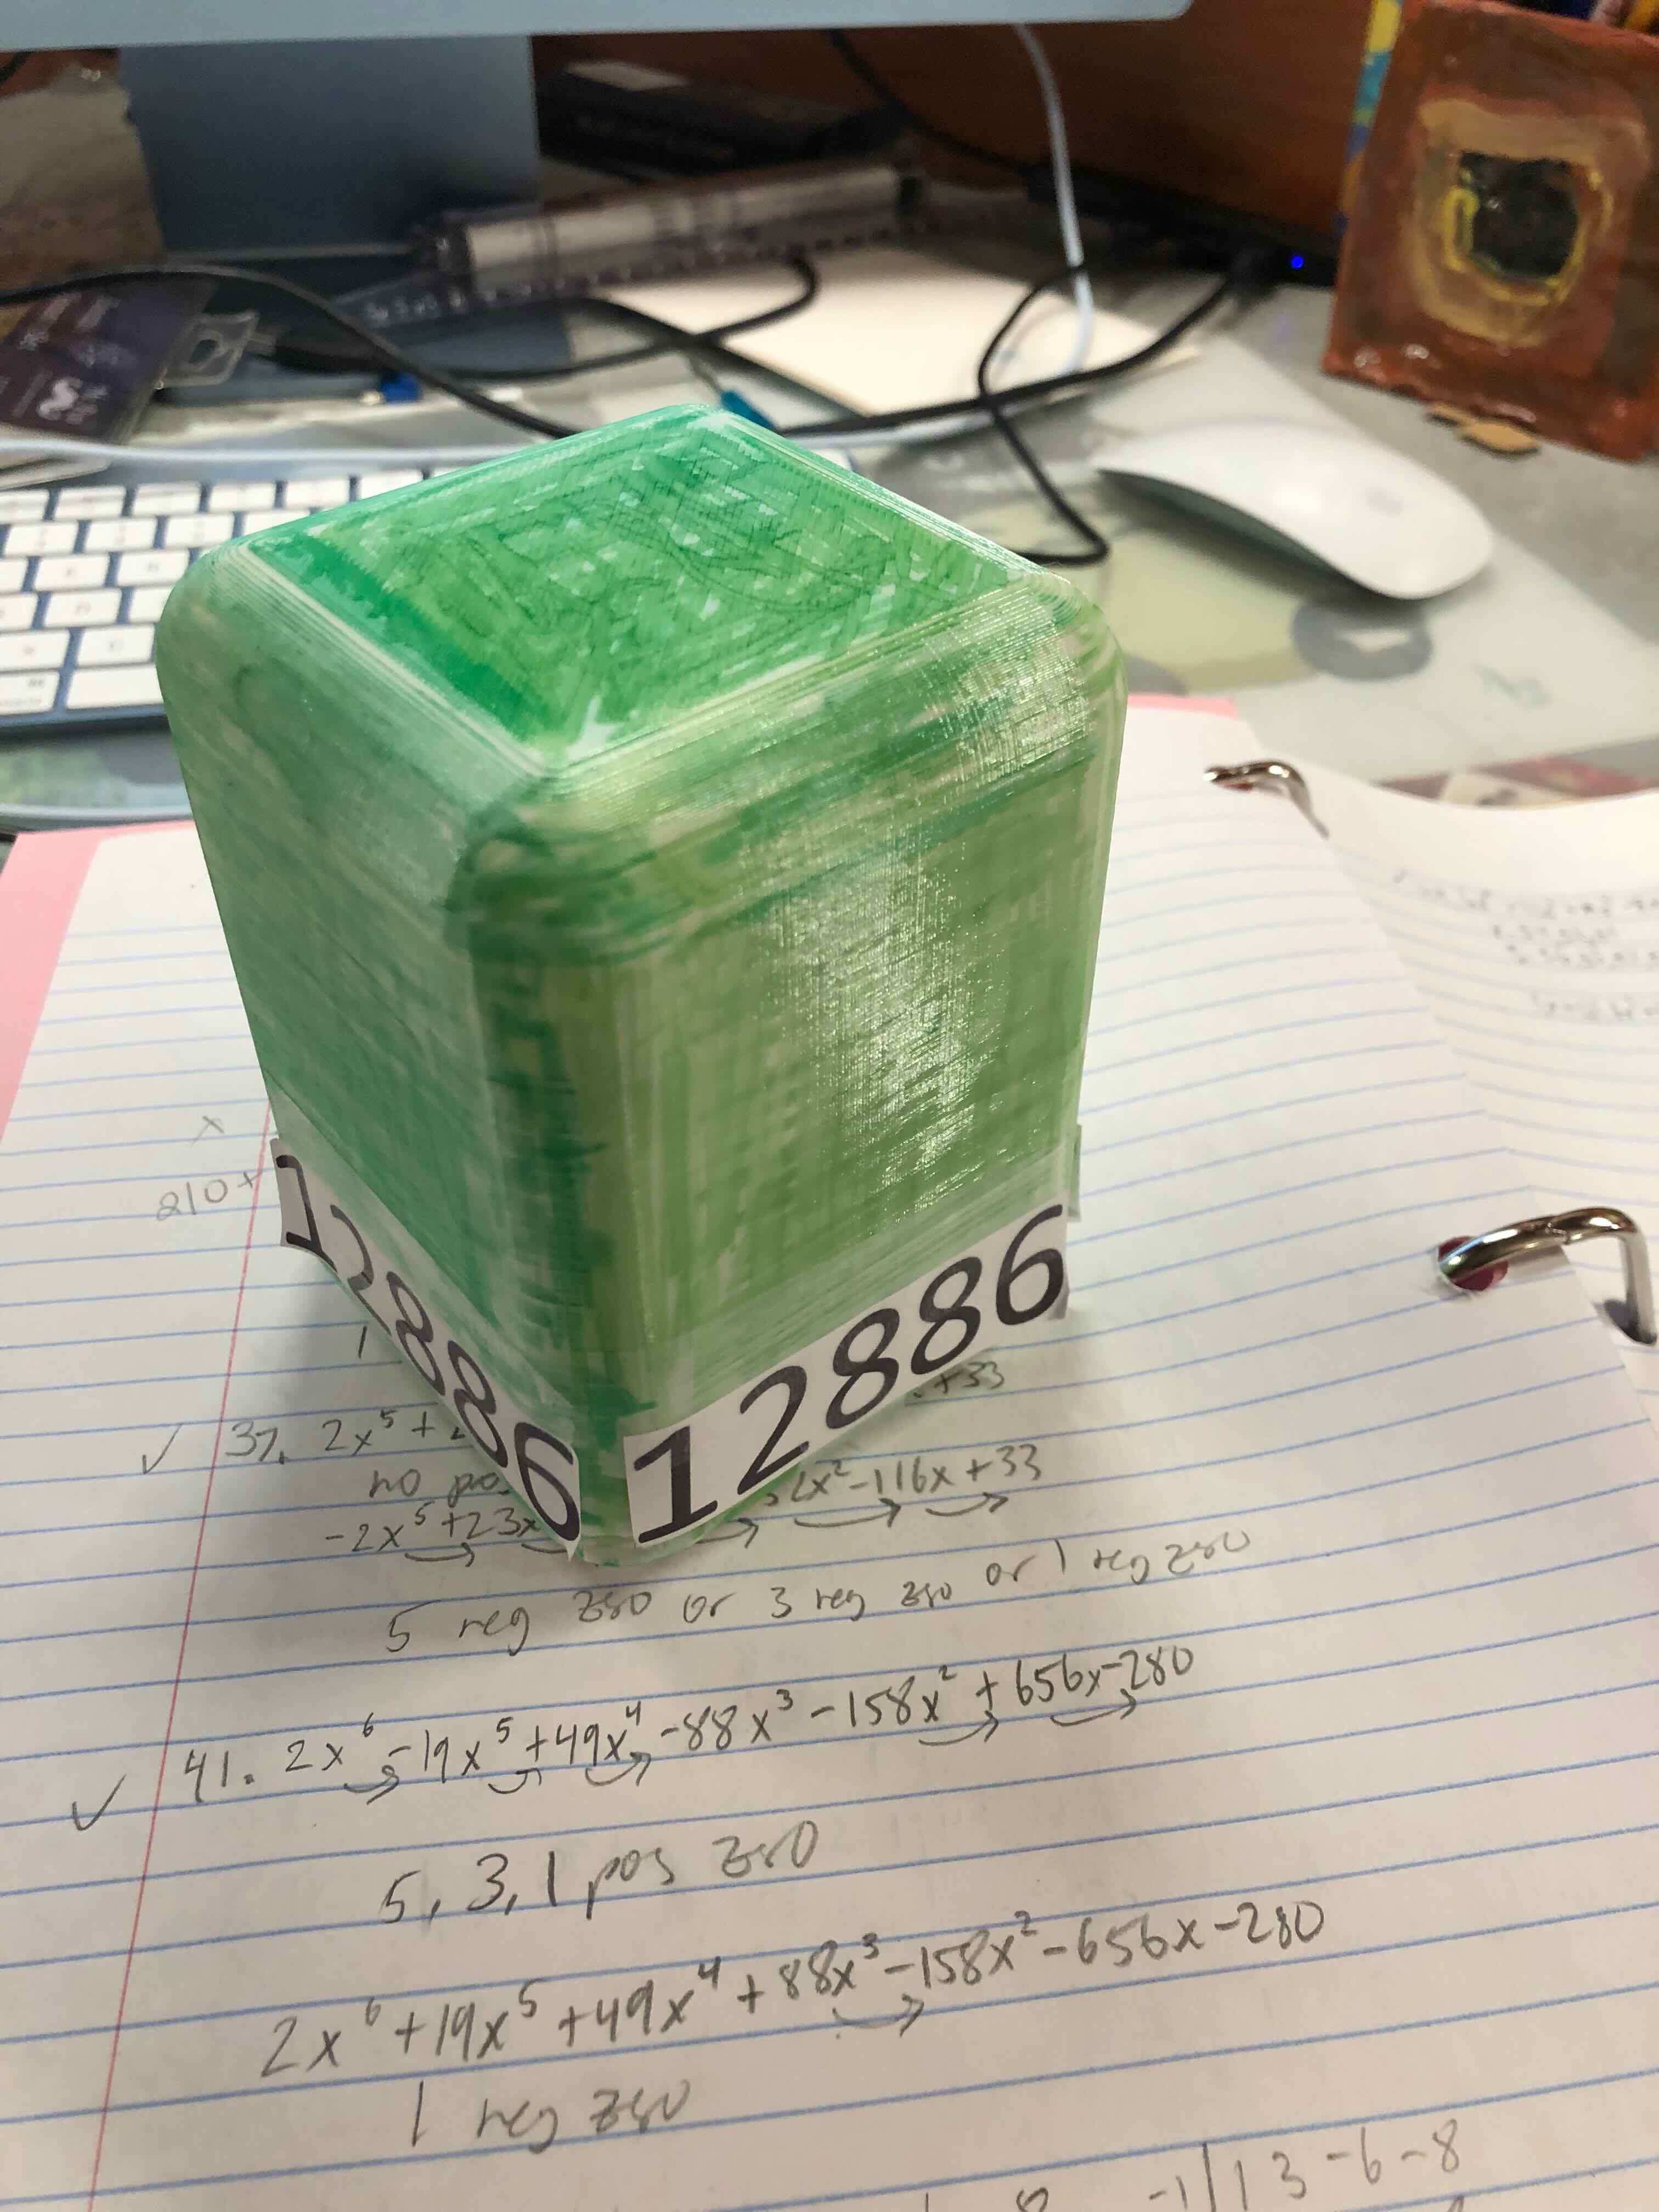 x
210+
12886
12886
1
+33
37. 2x⁵+
no pos
-2x⁵+23x
2x²-116x+33
5 neg zero or 3 neg zero or 1 neg zero
41. 2x⁶-19x⁵+49x⁴-88x³-158x²+656x-280
5, 3, 1 pos zero
2x⁶+19x⁵+49x⁴+88x³-158x²-656x-280
1 neg zero
-1| 1 3 -6 -8